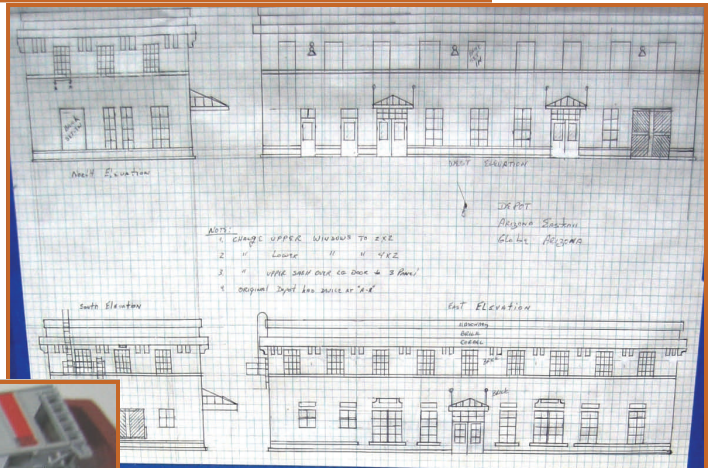 BRICK
North Elevation
EAST ELEVATION
DEPOT
Arizona Eastern
Globe, Arizona
Note:
1. Change UPPER WINDOWS TO 2X2
2 " Lower " " 4X2
3 " UPPER SASH OVER DOOR 3 Panel
4 ORIGINAL Depot had DEVICE AT "A-A"
South Elevation
EAST ELEVATION
BRICK
CORBEL
Brick